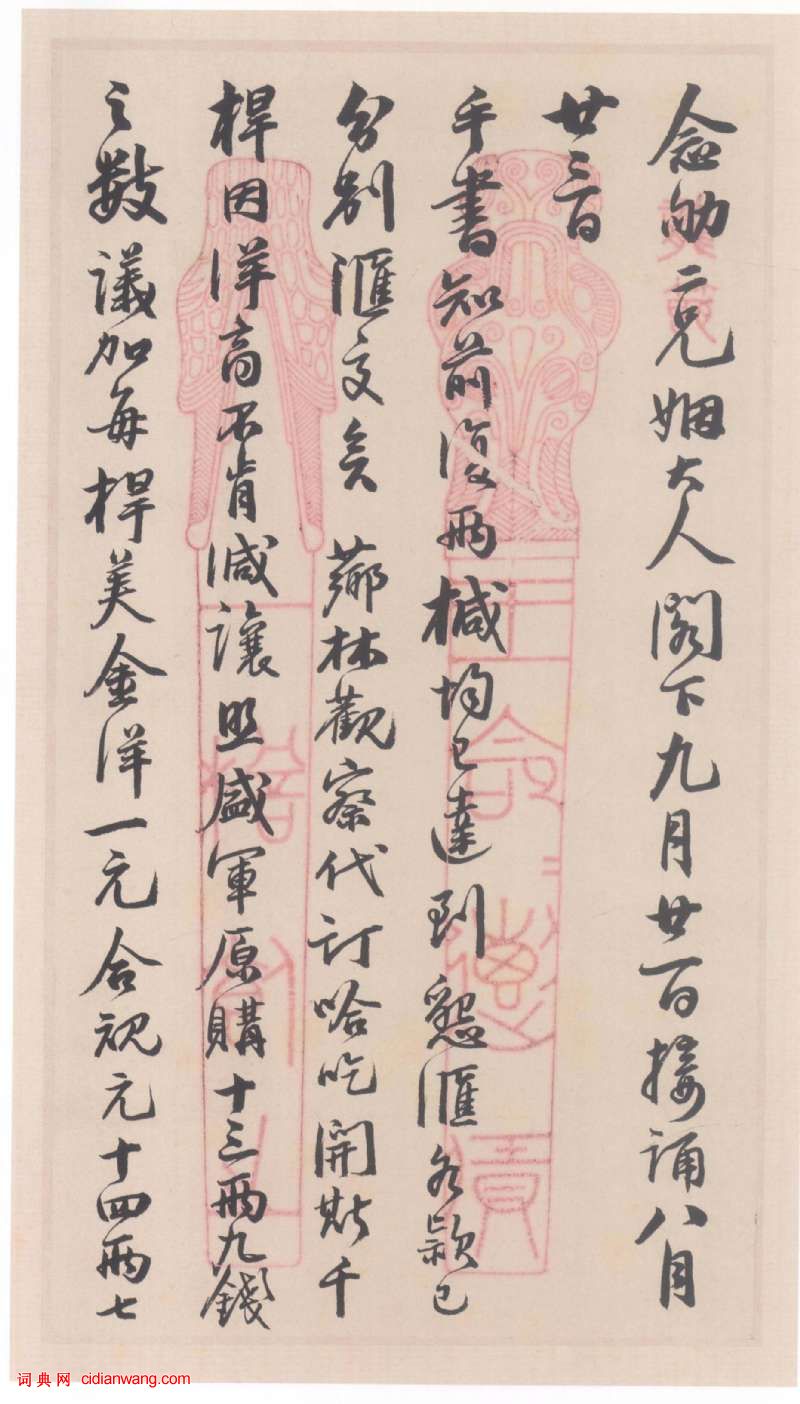 念劬二兄姻大人閣下九月廿一日接誦八月
廿三日
手書知前復兩椷均已達到懇匯各款已
分別匯交矣薌林觀察代訂哈吃開斯千
桿因洋商不肯減讓照盛軍原購十三兩九錢
之數議加每桿美金洋一元合規元十四兩七
词典网 cidianwang.com